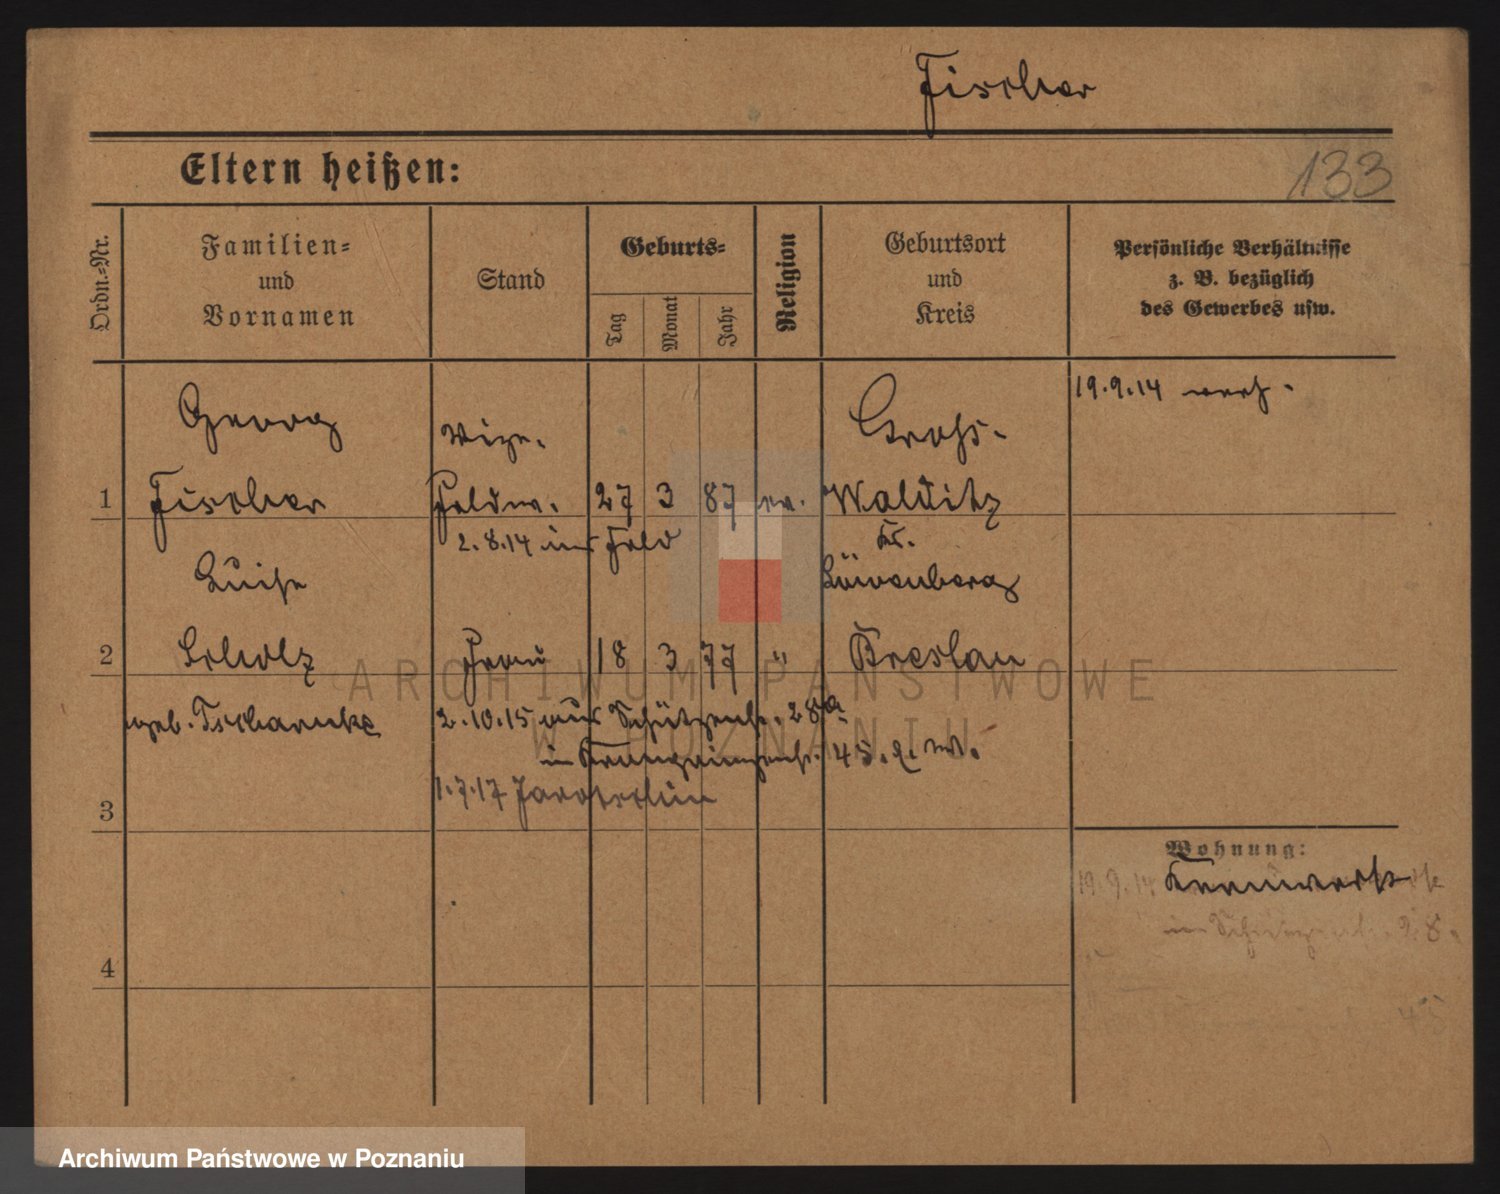 Fischer
Eltern heißen:
133
Ordn.=Nr.
Familien=
und
Vornamen
Stand
Geburts=
Tag
Monat
Jahr
Religion
Geburtsort
und
Kreis
Persönliche Verhältnisse
z. B. bezüglich
des Gewerbes usw.
19.9.14 verh.
Georg Vize- Gross-
1 Fischer Feldw. 27 3 87 ev. Walditz
2.8.14 ins Feld Kr.
Luise Löwenberg
2 Scholz Frau 18 3 77 " Breslau
geb. Tscharnke 2.10.15 aus Schützenstr. 28a
in Kronprinzenstr. 45. q. W.
1.7.17 Jarotschin
3
4
Wohnung:
19.9.14 Kernwerk
in Schützenstr. 28.
45
ARCHIWUM PAŃSTWOWE
W POZNANIU
Archiwum Państwowe w Poznaniu